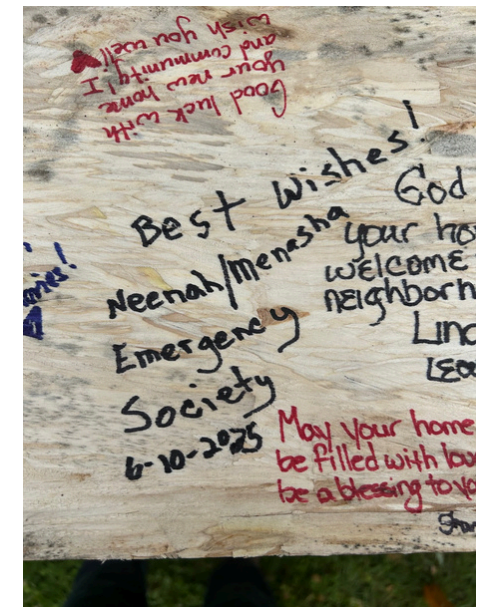 Good luck with
your new home
and community! I
wish you well!
Best Wishes!
Neenah/Menasha
Emergency
Society
6-10-2025
God
your
WELCOME
Lin
May your home
be filled with
be a blessing to